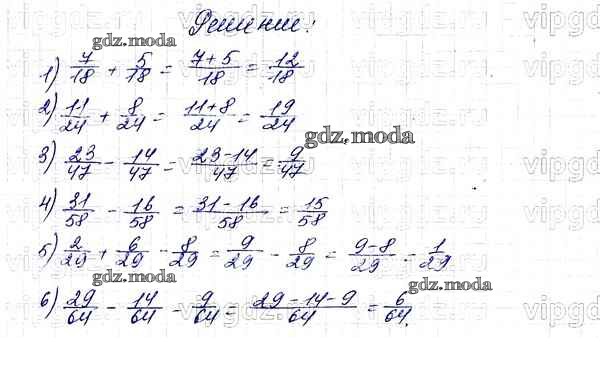 Решение:
gdz.moda
1) 7/18 + 5/18 = (7+5)/18 = 12/18
2) 11/24 + 8/24 = (11+8)/24 = 19/24
gdz.moda
3) 23/47 - 14/47 = (23-14)/47 = 9/47
4) 31/58 - 16/58 = (31-16)/58 = 15/58
5) 2/29 + 6/29 - 8/29 = 9/29 - 8/29 = (9-8)/29 = 1/29
gdz.moda
6) 29/64 - 14/64 - 9/64 = (29-14-9)/64 = 6/64.
gdz.moda